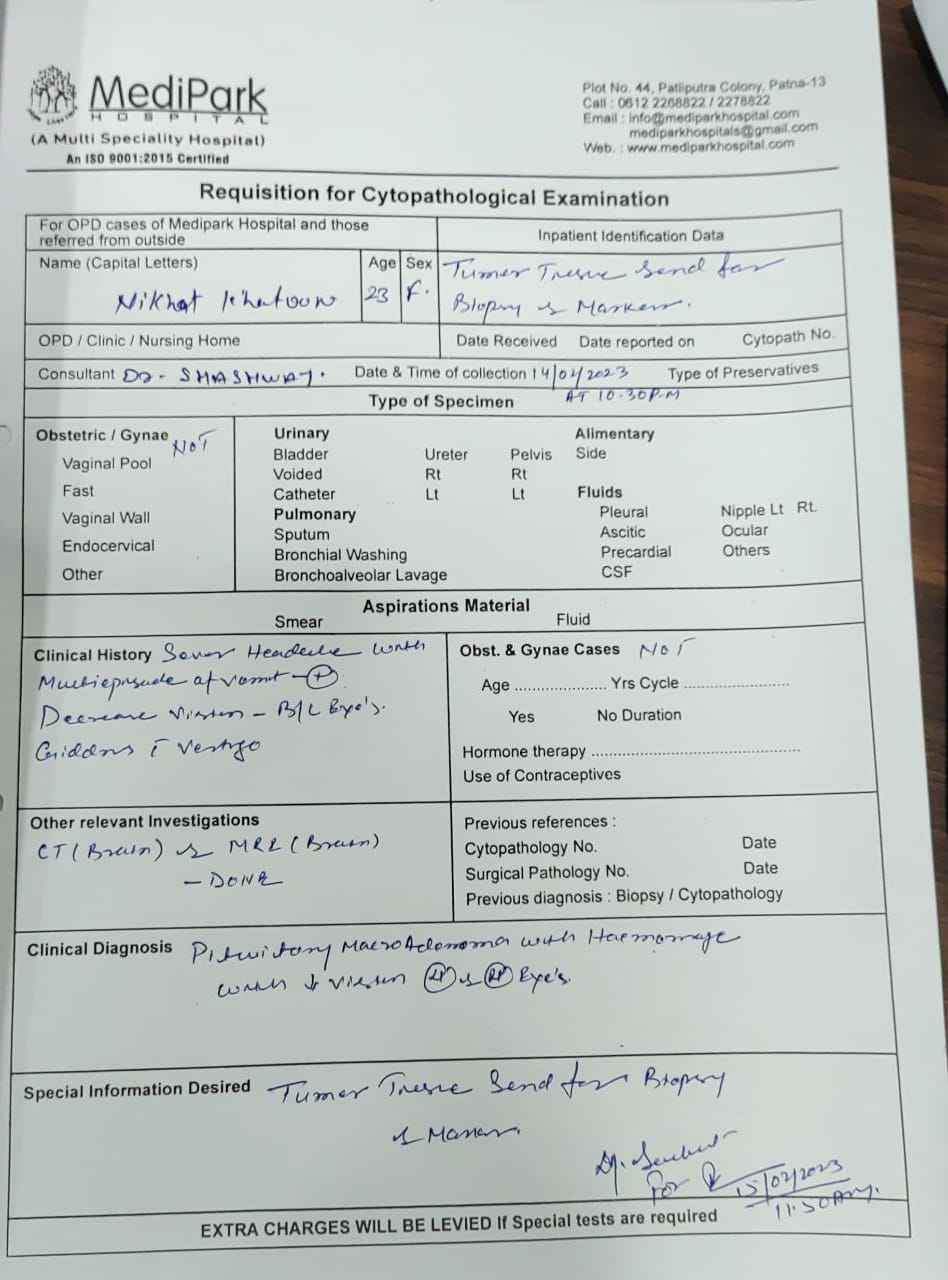 MediPark
HOSPITAL
(A Multi Speciality Hospital)
An ISO 9001:2015 Certified
Plot No. 44, Patliputra Colony, Patna-13
Call : 0612 2268822 / 2278822
Email : info@mediparkhospital.com
mediparkhospitals@gmail.com
Web. : www.mediparkhospital.com
Requisition for Cytopathological Examination
For OPD cases of Medipark Hospital and those
referred from outside
Inpatient Identification Data
Name (Capital Letters) Age Sex
Nikhat Khatoon 23 F.
Tumor Tissue Send for
Biopsy & Marker.
OPD / Clinic / Nursing Home
Date Received Date reported on Cytopath No.
Consultant Dr - SHASHWAT. Date & Time of collection 14/02/2023 Type of Preservatives
AT 10.30P.M
Type of Specimen
Obstetric / Gynae NOT
Vaginal Pool
Fast
Vaginal Wall
Endocervical
Other
Urinary
Bladder Ureter Pelvis
Voided Rt Rt
Catheter Lt Lt
Pulmonary
Sputum
Bronchial Washing
Bronchoalveolar Lavage
Alimentary
Side
Fluids
Pleural Nipple Lt Rt.
Ascitic Ocular
Precardial Others
CSF
Aspirations Material
Smear Fluid
Clinical History Sever Headache with
of vomit - +
Decrease Vision - B/L Eye's.
Vertigo
Obst. & Gynae Cases NOT
Age .................... Yrs Cycle .......................
Yes No Duration
Hormone therapy .............................................
Use of Contraceptives
Other relevant Investigations
CT (Brain) & MRI (Brain)
- DONE
Previous references :
Cytopathology No. Date
Surgical Pathology No. Date
Previous diagnosis : Biopsy / Cytopathology
Clinical Diagnosis Pituitary MacroAdenoma with
with ↓ vision & Eye's.
Special Information Desired Tumor Tissue Send for Biopsy
& Marker.
For
15/02/2023
11:30Am.
EXTRA CHARGES WILL BE LEVIED If Special tests are required